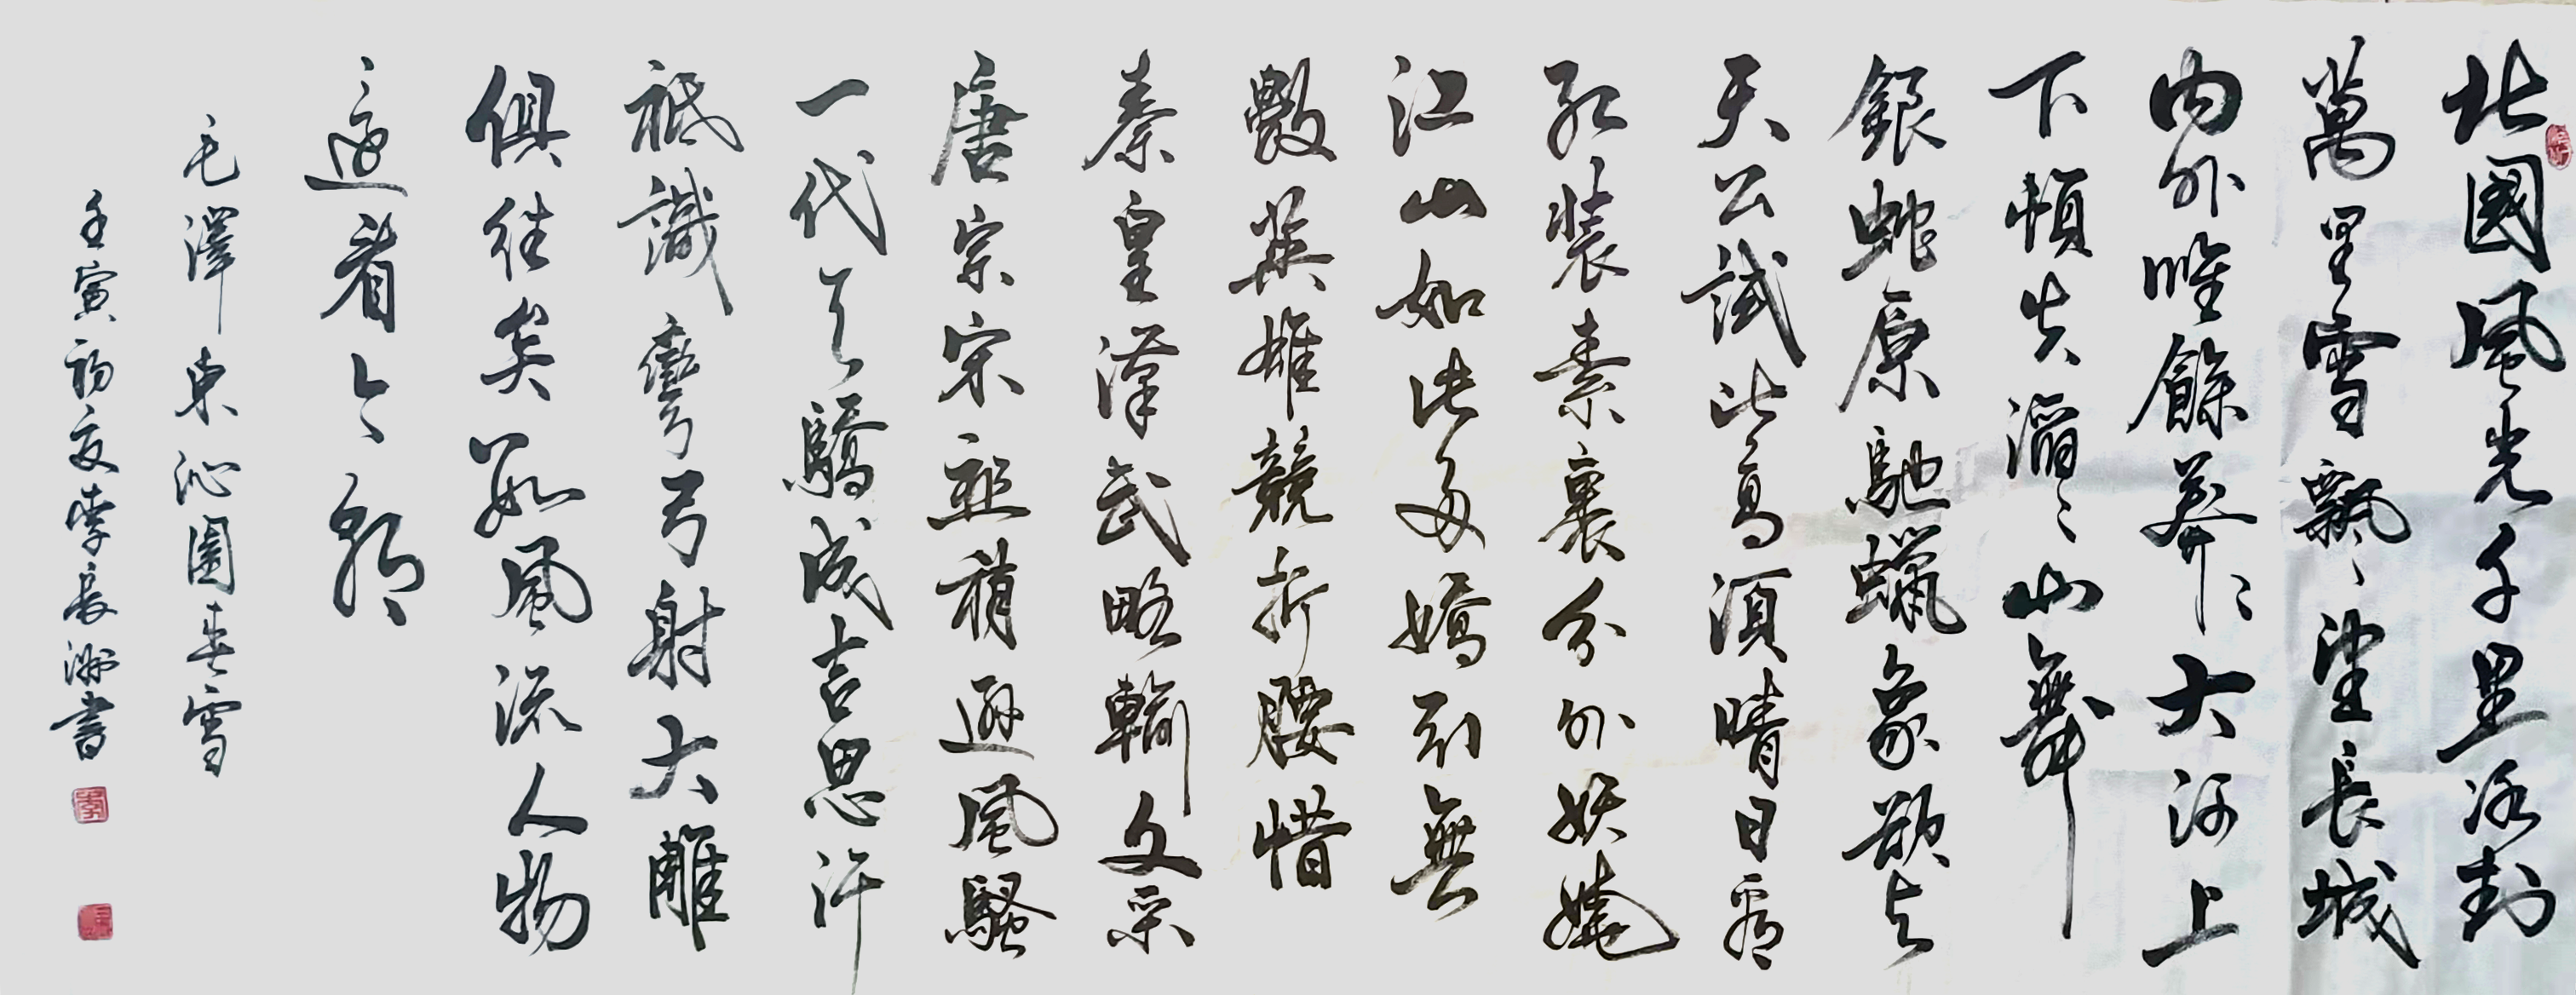 北國風光千里冰封
萬里雪飄望長城
內外唯餘莽〻大河上
下頓失滔〻山舞
銀蛇原馳蠟象欲与
天公試比高須晴日看
紅裝素裹分外妖嬈
江山如此多嬌引無
數英雄競折腰惜
秦皇漢武略輸文采
唐宗宋祖稍遜風騷
一代天驕成吉思汗
祗識彎弓射大雕
俱往矣數風流人物
還看今朝
毛澤東沁園春雪
壬寅初夏李長洲書